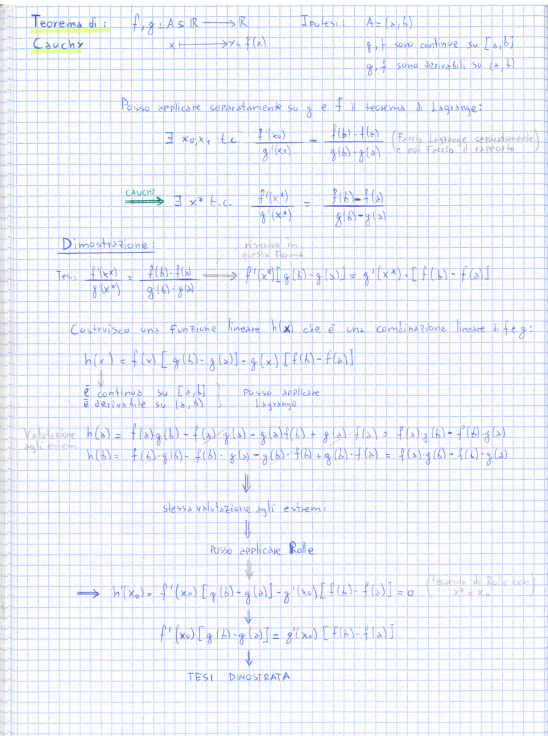 Teorema di: f, g: A ⊆ ℝ → ℝ Ipotesi: A = (a, b)
Cauchy x ↦ y = f(x) g, f sono continue su [a, b]
g, f sono derivabili su (a, b)
Posso applicare separatamente su g e f il teorema di Lagrange:
∃ x₀, x₁ t.c. f'(x₀)/g'(x₁) = (f(b)-f(a))/(g(b)-g(a)) (Faccio Lagrange separatamente
e poi faccio il rapporto)
CAUCHY ⟹ ∃ x* t.c. f'(x*)/g'(x*) = (f(b)-f(a))/(g(b)-g(a))
Dimostrazione:
riscrivo in
questa forma
Tesi: f'(x*)/g(x*) = (f(b)-f(a))/(g(b)-g(a)) → f'(x*)[g(b)-g(a)] = g'(x*)·[f(b)-f(a)]
Costruisco una funzione lineare h(x) che è una combinazione lineare di f e g:
h(x) = f(x)[g(b)-g(a)]-g(x)[f(b)-f(a)]
è continua su [a, b] } Posso applicare
è derivabile su (a, b) } Lagrange
Valutazione h(a) = f(a)g(b) - f(a)·g(a) - g(a)f(b) + g(a)·f(a) = f(a)·g(b) - f(b)·g(a)
agli estremi h(b) = f(b)·g(b) - f(b)·g(a) - g(b)·f(b) + g(b)·f(a) = f(a)·g(b) - f(b)·g(a)
⇓
stessa valutazione agli estremi
⇓
Posso applicare Rolle
⇓
⟹ h'(x₀) = f'(x₀)[g(b)-g(a)]-g'(x₀)[f(b)-f(a)] = 0 (Teorema di Rolle con
x* = x₀)
↓
f'(x₀)[g(b)-g(a)] = g'(x₀)[f(b)-f(a)]
↓
TESI DIMOSTRATA